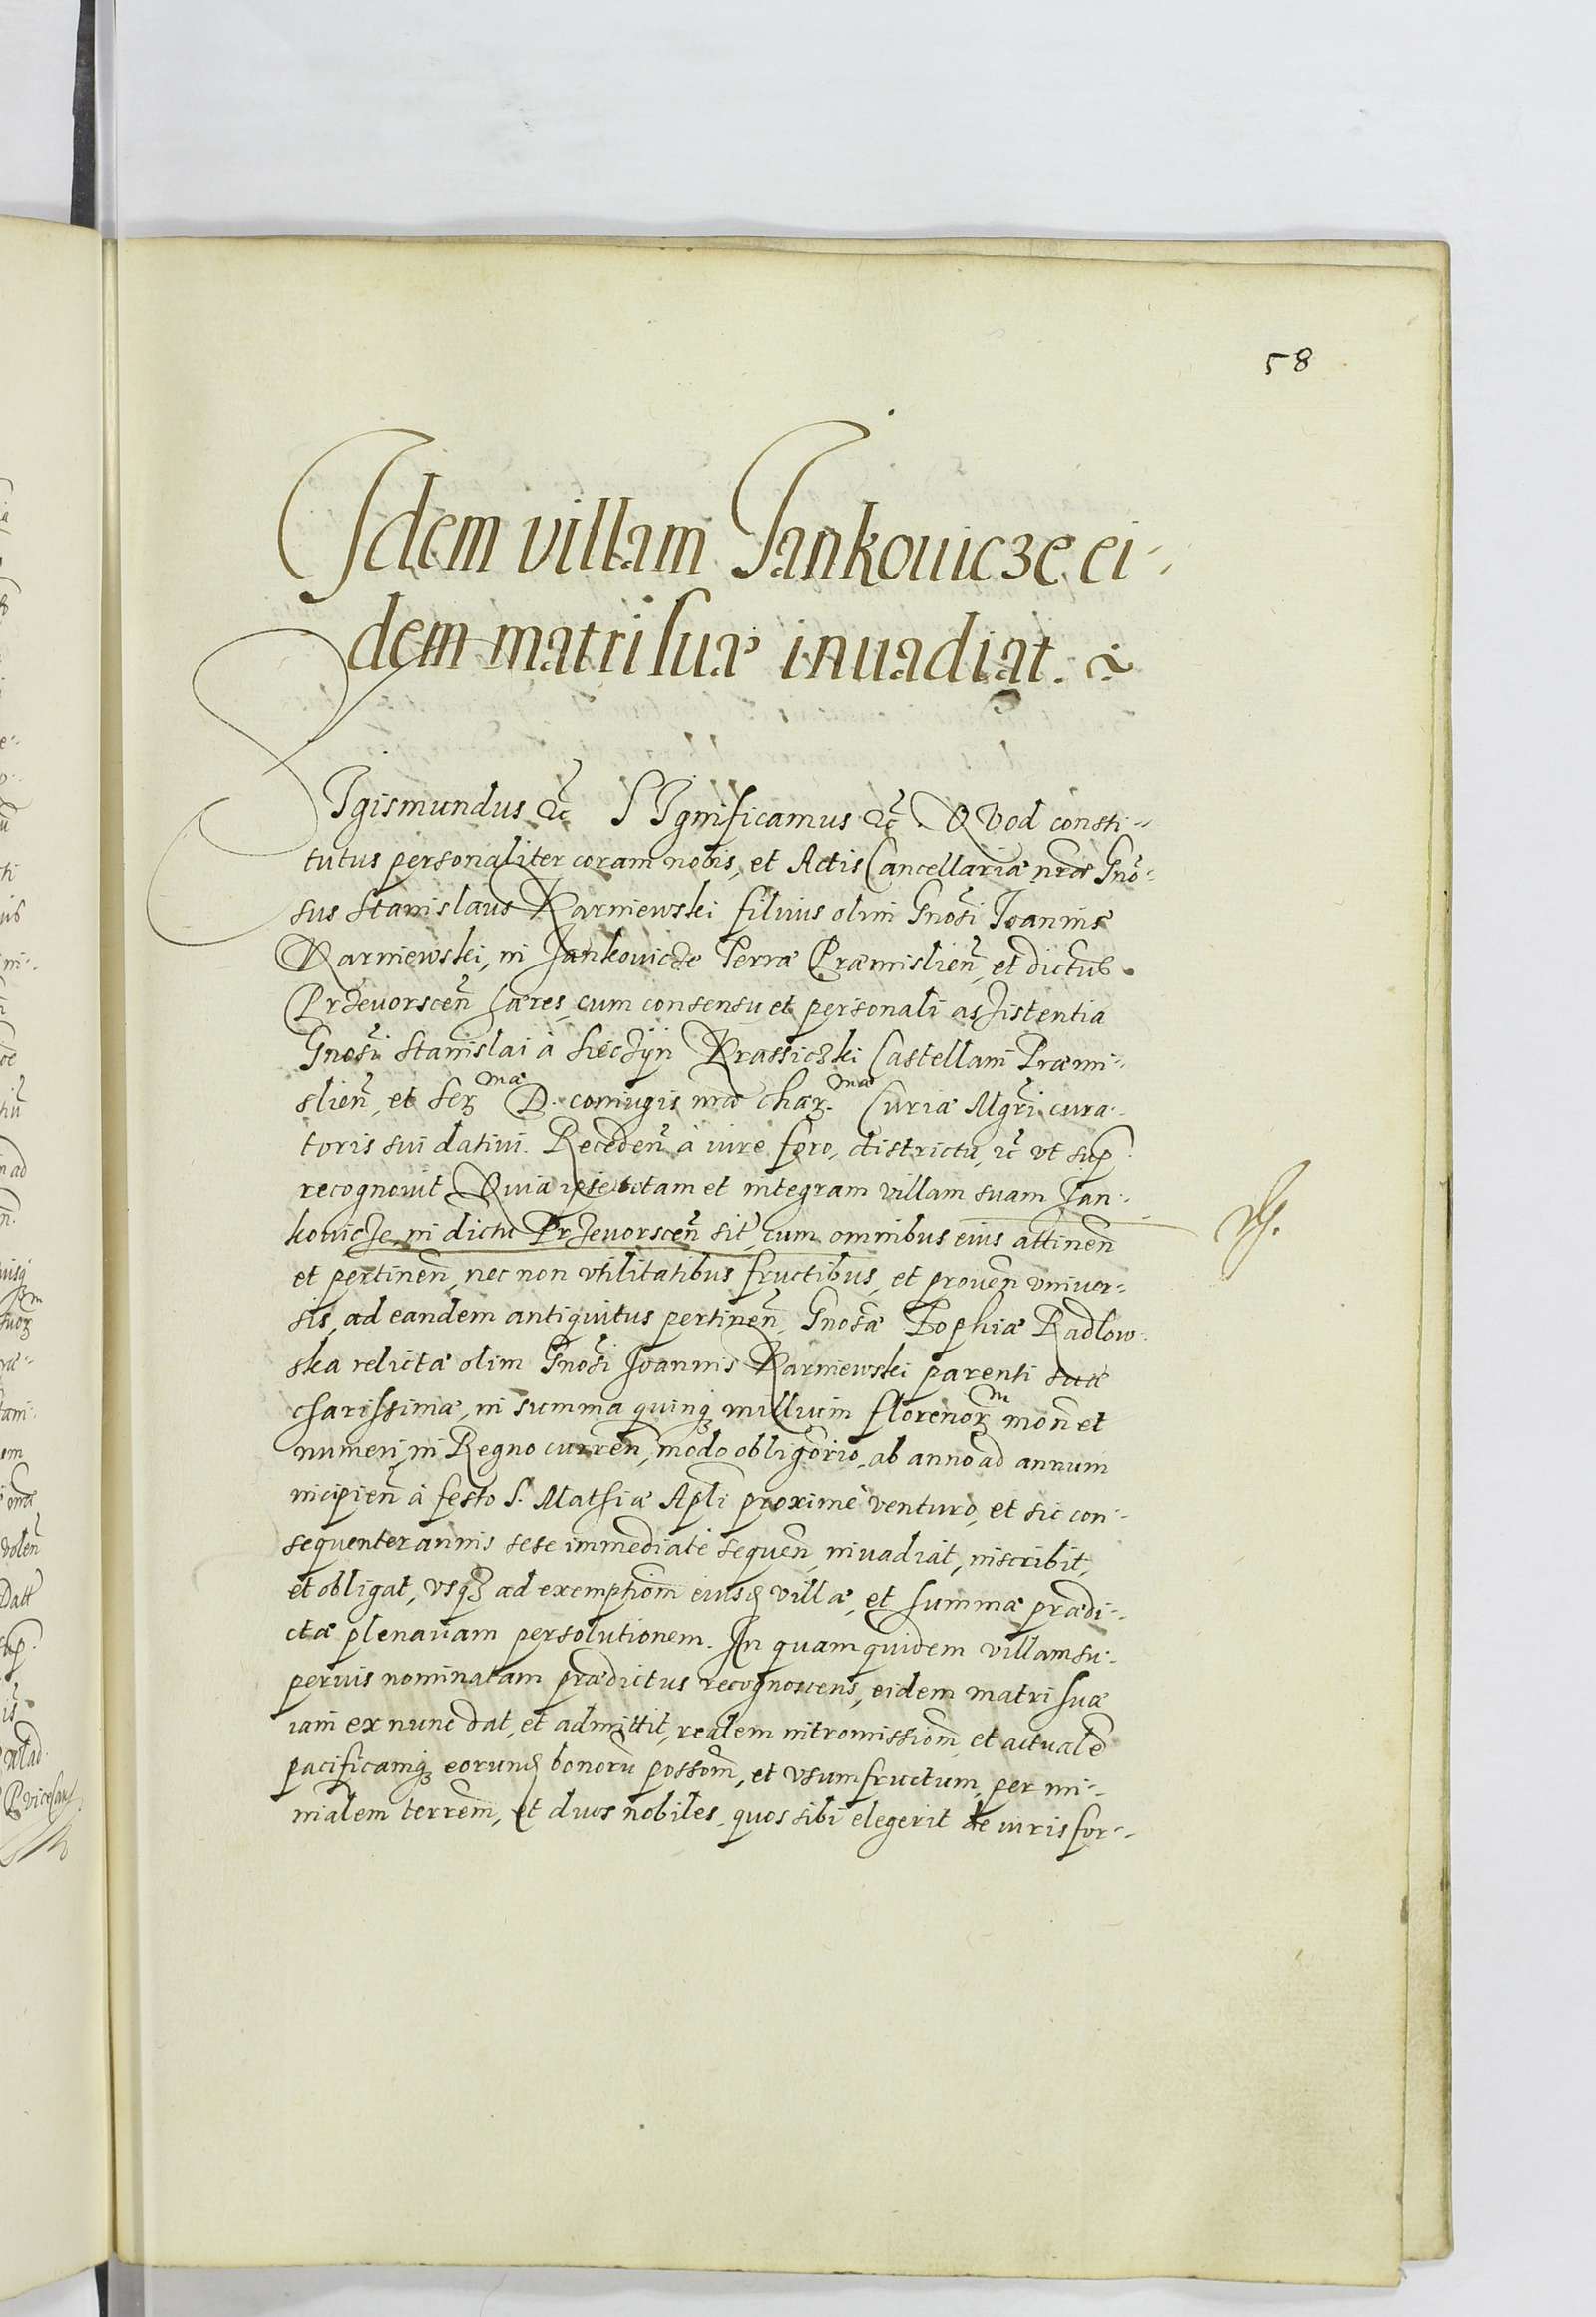 58
Idem villam Jankouicze ei-
dem matri suæ inuadiat.
SIgismundus &c̃ SIgnificamus &c̃. QVod consti-
tutus personaliter coram nobis, et Actis Cancellariæ nr̃æ Gnõ-
sus Stanislaus Karniewski filiuius olim Gnõsi Joannis
Karniewski, in Jankouicze Terræ Præmislieñ, et dictus
Przeuorsceñ hæres, cum consensu et personali assistentia
Gnõsi Stanislai à Sieczÿn Krassiczki Castellani Præmi-
slieñ, et Ser.mæ D. coniugis nr̃æ char.mæ Curiæ Mgr̃i cura-
toris sui datiui. Recedeñ à iure foro, districtu, &c̃ vt sup.
recognouit Quia ipse totam et integram villam suam Jan-
kouicze, in dictu Przeuorsceñ sit, cum omnibus eius attineñ
et pertineñ, nec non vtilitatibus fructibus, et proueñ vniuer-
sis, ad eandem antiquitus pertineñ, Gnõsæ Zophiæ Radlow-
ska relictæ olim Gnõsi Joannis Karniewski parenti suæ
charissimæ, in summa quinq; millium florenor.m moñ et
numeri, in Regno curreñ, modo obligõrio, ab anno ad annum
incipieñ à festo S. Mathiæ Apli proximè venturo, et sic con-
sequenter annis sese immediatè sequeñ, inuadiat, inscribit,
et obligat, vsq; ad exemptiom̃ eiusd villæ, et summæ prædi-
ctæ plenariam persolutionem. In quam quidem villam su-
perius nominatam prædictus recognoscens, eidem matri suæ
iam ex nunc dat, et admittit, realem intromissiom̃, et actualẽ
pacificamq; eorund bonorũ possom̃, et vsumfructum, per mi-
nialem terrem̃, et duos nobiles, quos sibi elegerit de iuris for-